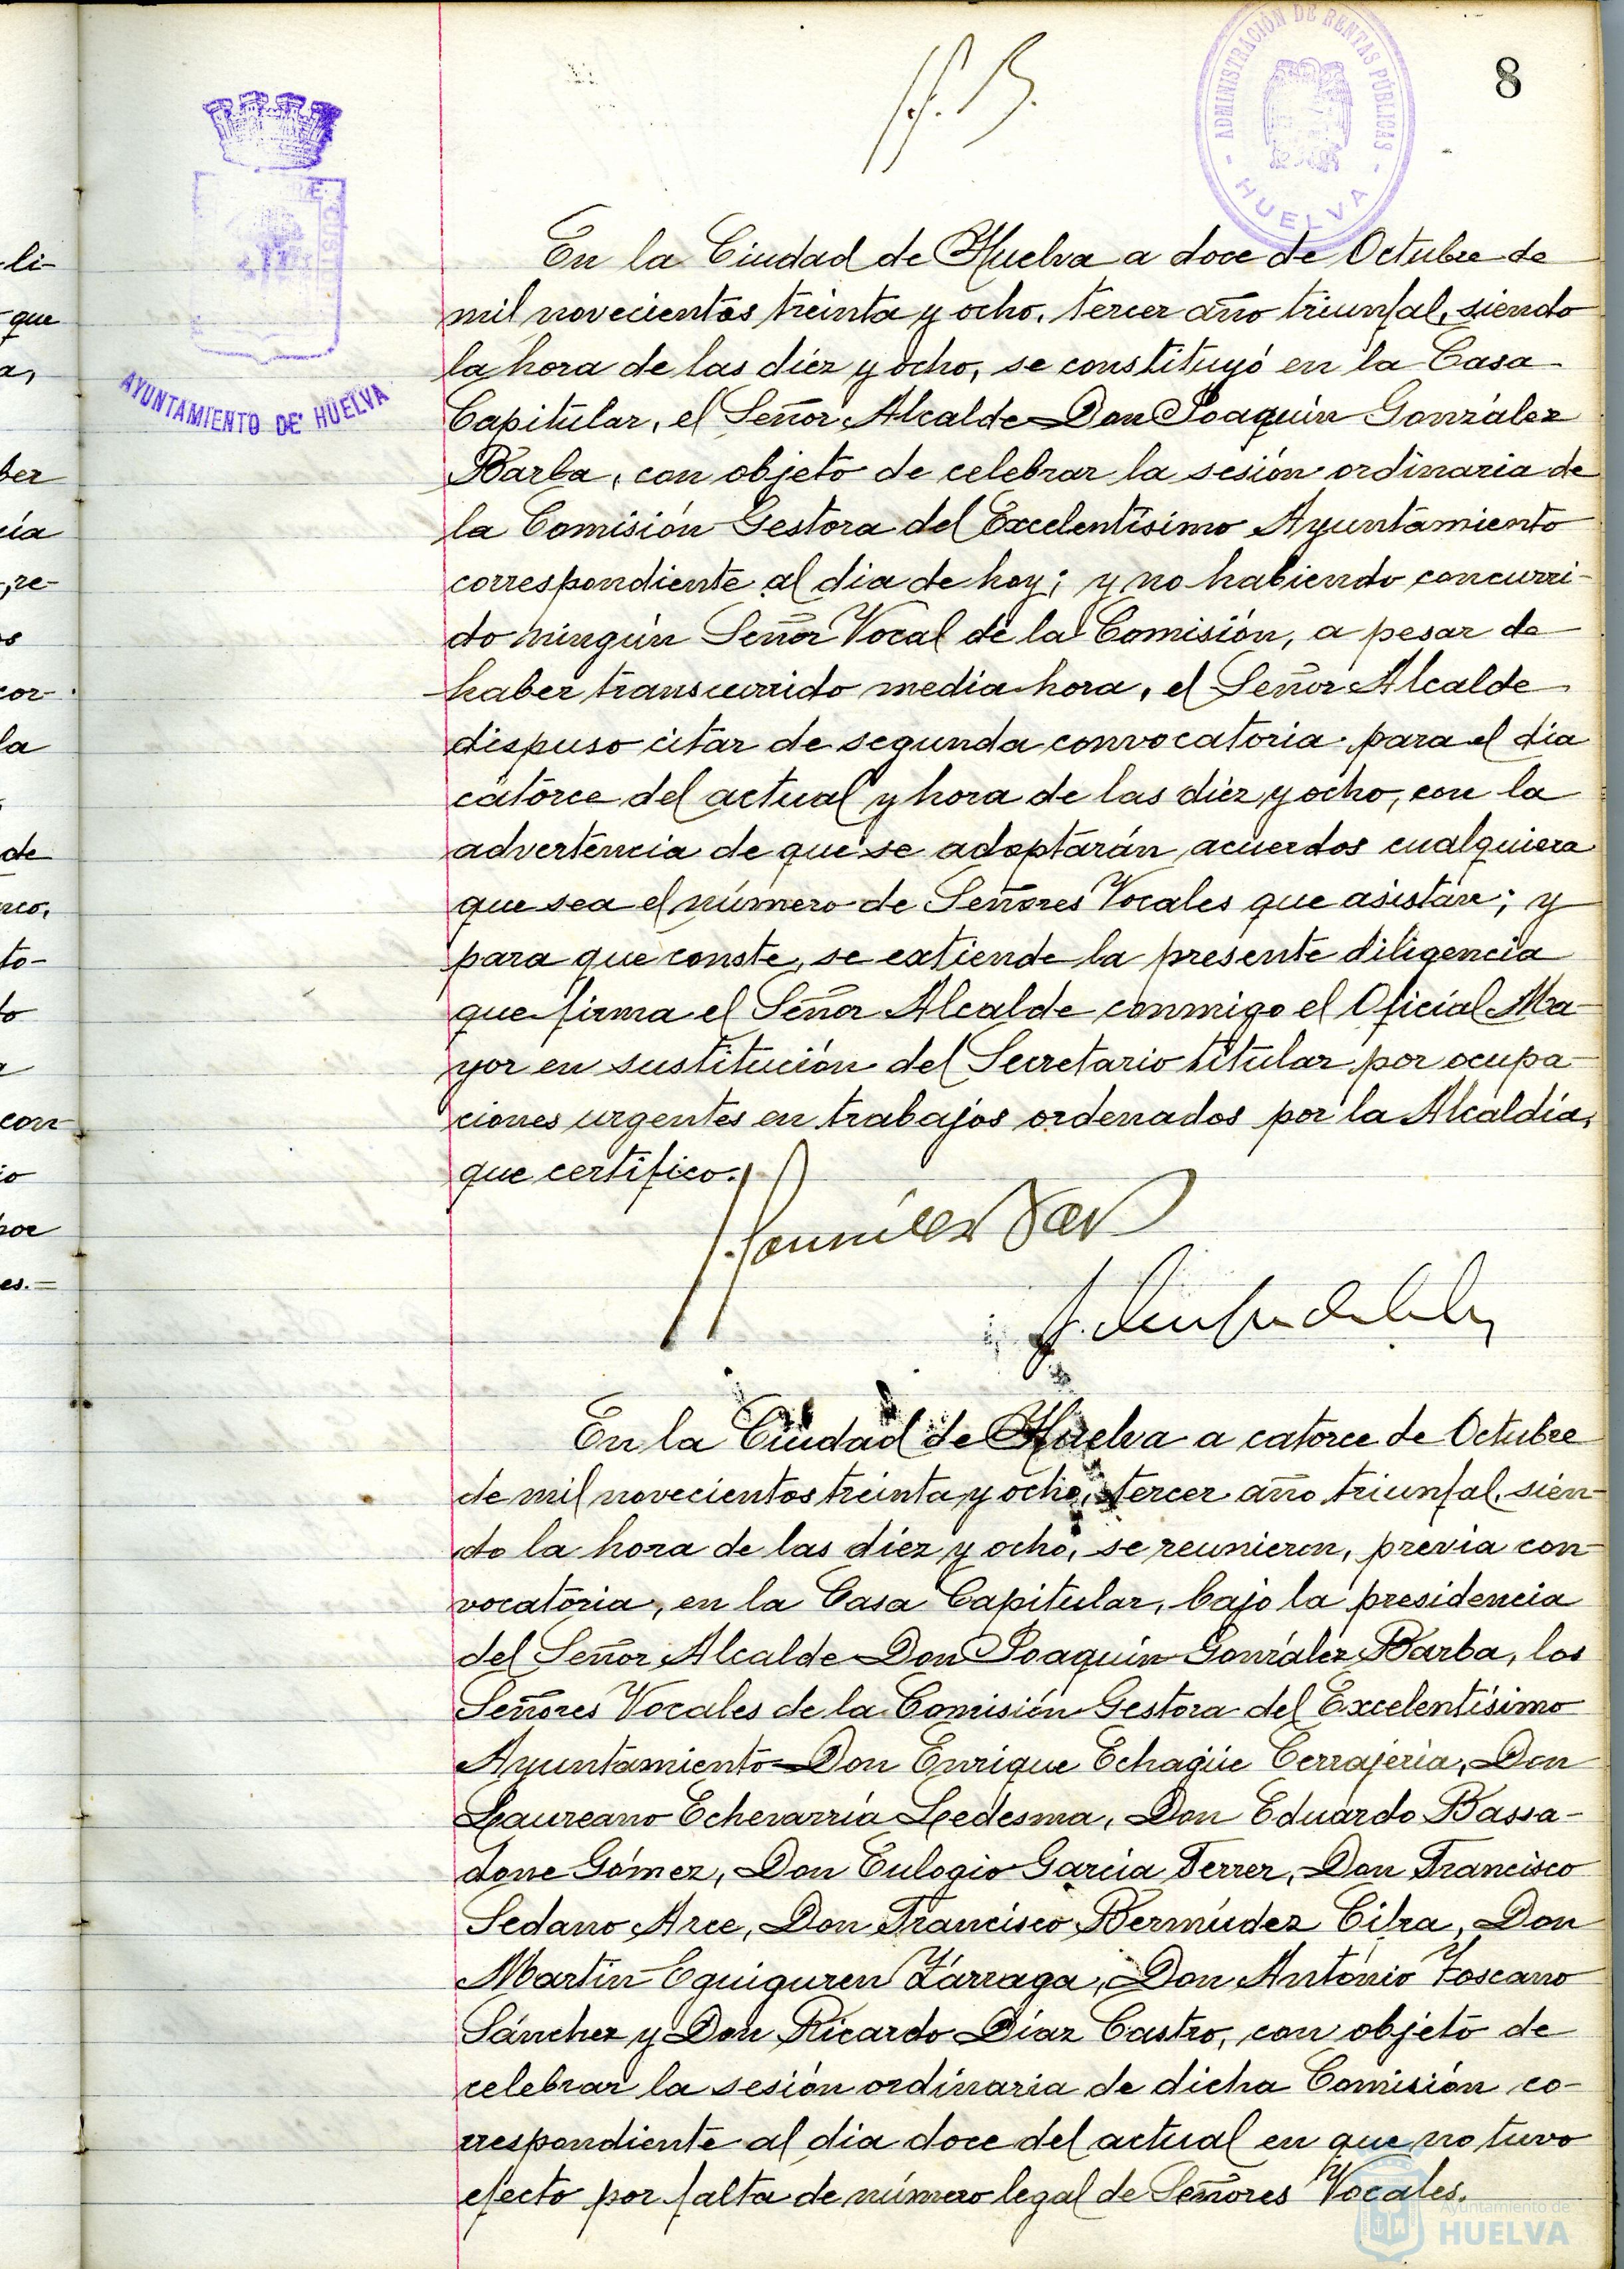 8
ADMINISTRACIÓN DE RENTAS PÚBLICAS
HUELVA
AYUNTAMIENTO DE HUELVA
En la Ciudad de Huelva a doce de Octubre de
mil novecientos treinta y ocho, tercer año triunfal, siendo
la hora de las diez y ocho, se constituyó en la Casa
Capitular, el Señor Alcalde Don Joaquín González
Barba, con objeto de celebrar la sesión ordinaria de
la Comisión Gestora del Excelentísimo Ayuntamiento
correspondiente al dia de hoy; y no habiendo concurri-
do ningún Señor Vocal de la Comisión, a pesar de
haber transcurrido media hora, el Señor Alcalde
dispuso citar de segunda convocatoria para el dia
catorce del actual y hora de las diez y ocho, con la
advertencia de que se adoptarán acuerdos cualquiera
que sea el número de Señores Vocales que asistan; y
para que conste, se extiende la presente diligencia
que firma el Señor Alcalde conmigo el Oficial Ma-
yor en sustitución del Secretario titular por ocupa-
ciones urgentes en trabajos ordenados por la Alcaldía,
que certifico.
En la Ciudad de Huelva a catorce de Octubre
de mil novecientos treinta y ocho, tercer año triunfal, sien-
do la hora de las diez y ocho, se reunieron, previa con-
vocatoria, en la Casa Capitular, bajo la presidencia
del Señor Alcalde Don Joaquín González Barba, los
Señores Vocales de la Comisión Gestora del Excelentísimo
Ayuntamiento Don Enrique Echagüe Cerrajería, Don
Laureano Echevarría Ledesma, Don Eduardo Bassa-
done Gómez, Don Eulogio García Ferrer, Don Francisco
Sedano Arce, Don Francisco Bermúdez Cilra, Don
Martín Eguiguren Zárraga, Don Antonio Toscano
Sánchez y Don Ricardo Díaz Castro, con objeto de
celebrar la sesión ordinaria de dicha Comisión co-
rrespondiente al dia doce del actual en que no tuvo
efecto por falta de número legal de Señores Vocales.
Ayuntamiento de
HUELVA